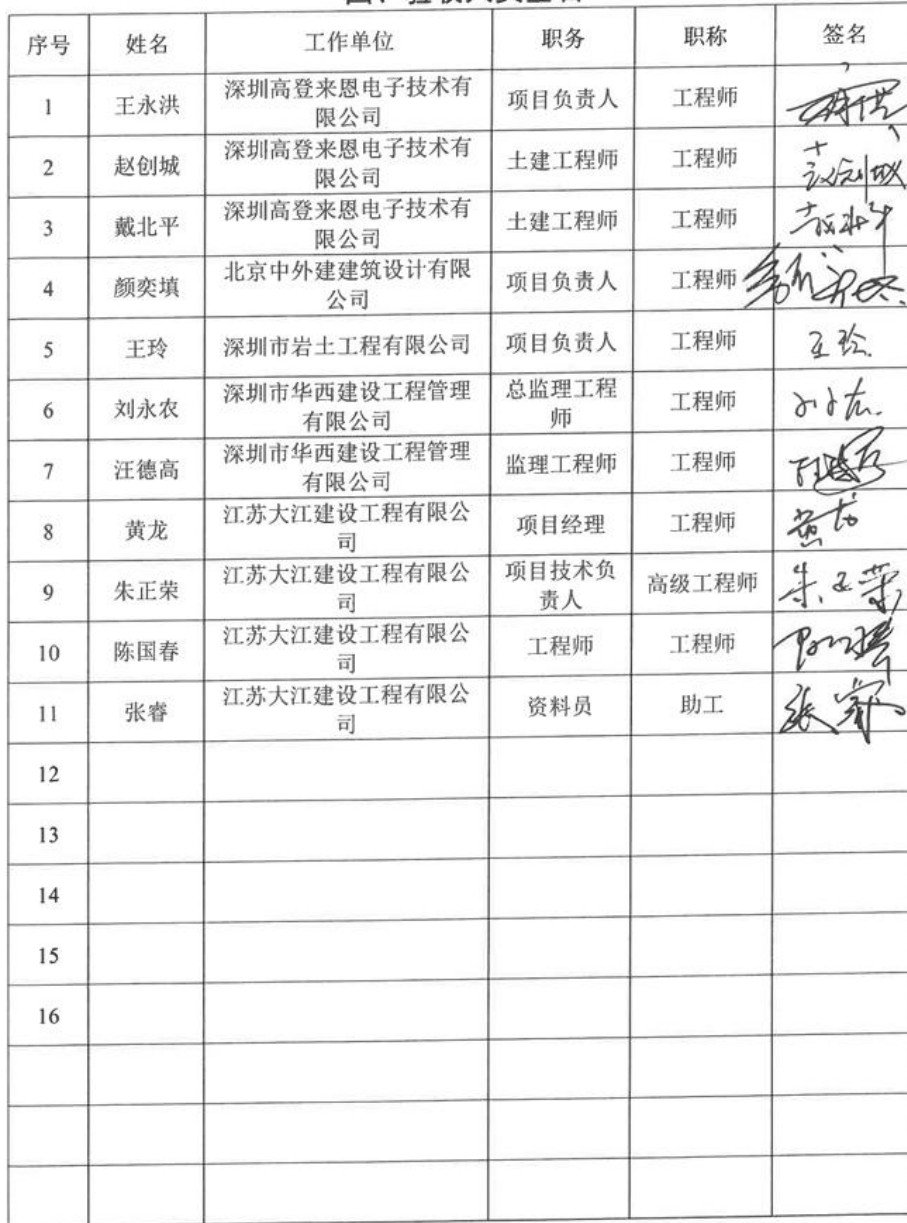 序号 姓名 工作单位 职务 职称 签名
1 王永洪 深圳高登来恩电子技术有 项目负责人 工程师
限公司
2 赵创城 深圳高登来恩电子技术有 土建工程师 工程师
限公司
3 戴北平 深圳高登来恩电子技术有 土建工程师 工程师
限公司
4 颜奕填 北京中外建建筑设计有限 项目负责人 工程师
公司
5 王玲 深圳市岩土工程有限公司 项目负责人 工程师 王玲
6 刘永农 深圳市华西建设工程管理 总监理工程 工程师
有限公司 师
7 汪德高 深圳市华西建设工程管理 监理工程师 工程师
有限公司
8 黄龙 江苏大江建设工程有限公 项目经理 工程师 黄龙
司
9 朱正荣 江苏大江建设工程有限公 项目技术负 高级工程师 朱正荣
司 责人
10 陈国春 江苏大江建设工程有限公 工程师 工程师
司
11 张睿 江苏大江建设工程有限公 资料员 助工 张睿
司
12
13
14
15
16